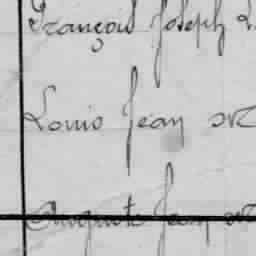 François Joseph
Louis Jean
Auguste Jean